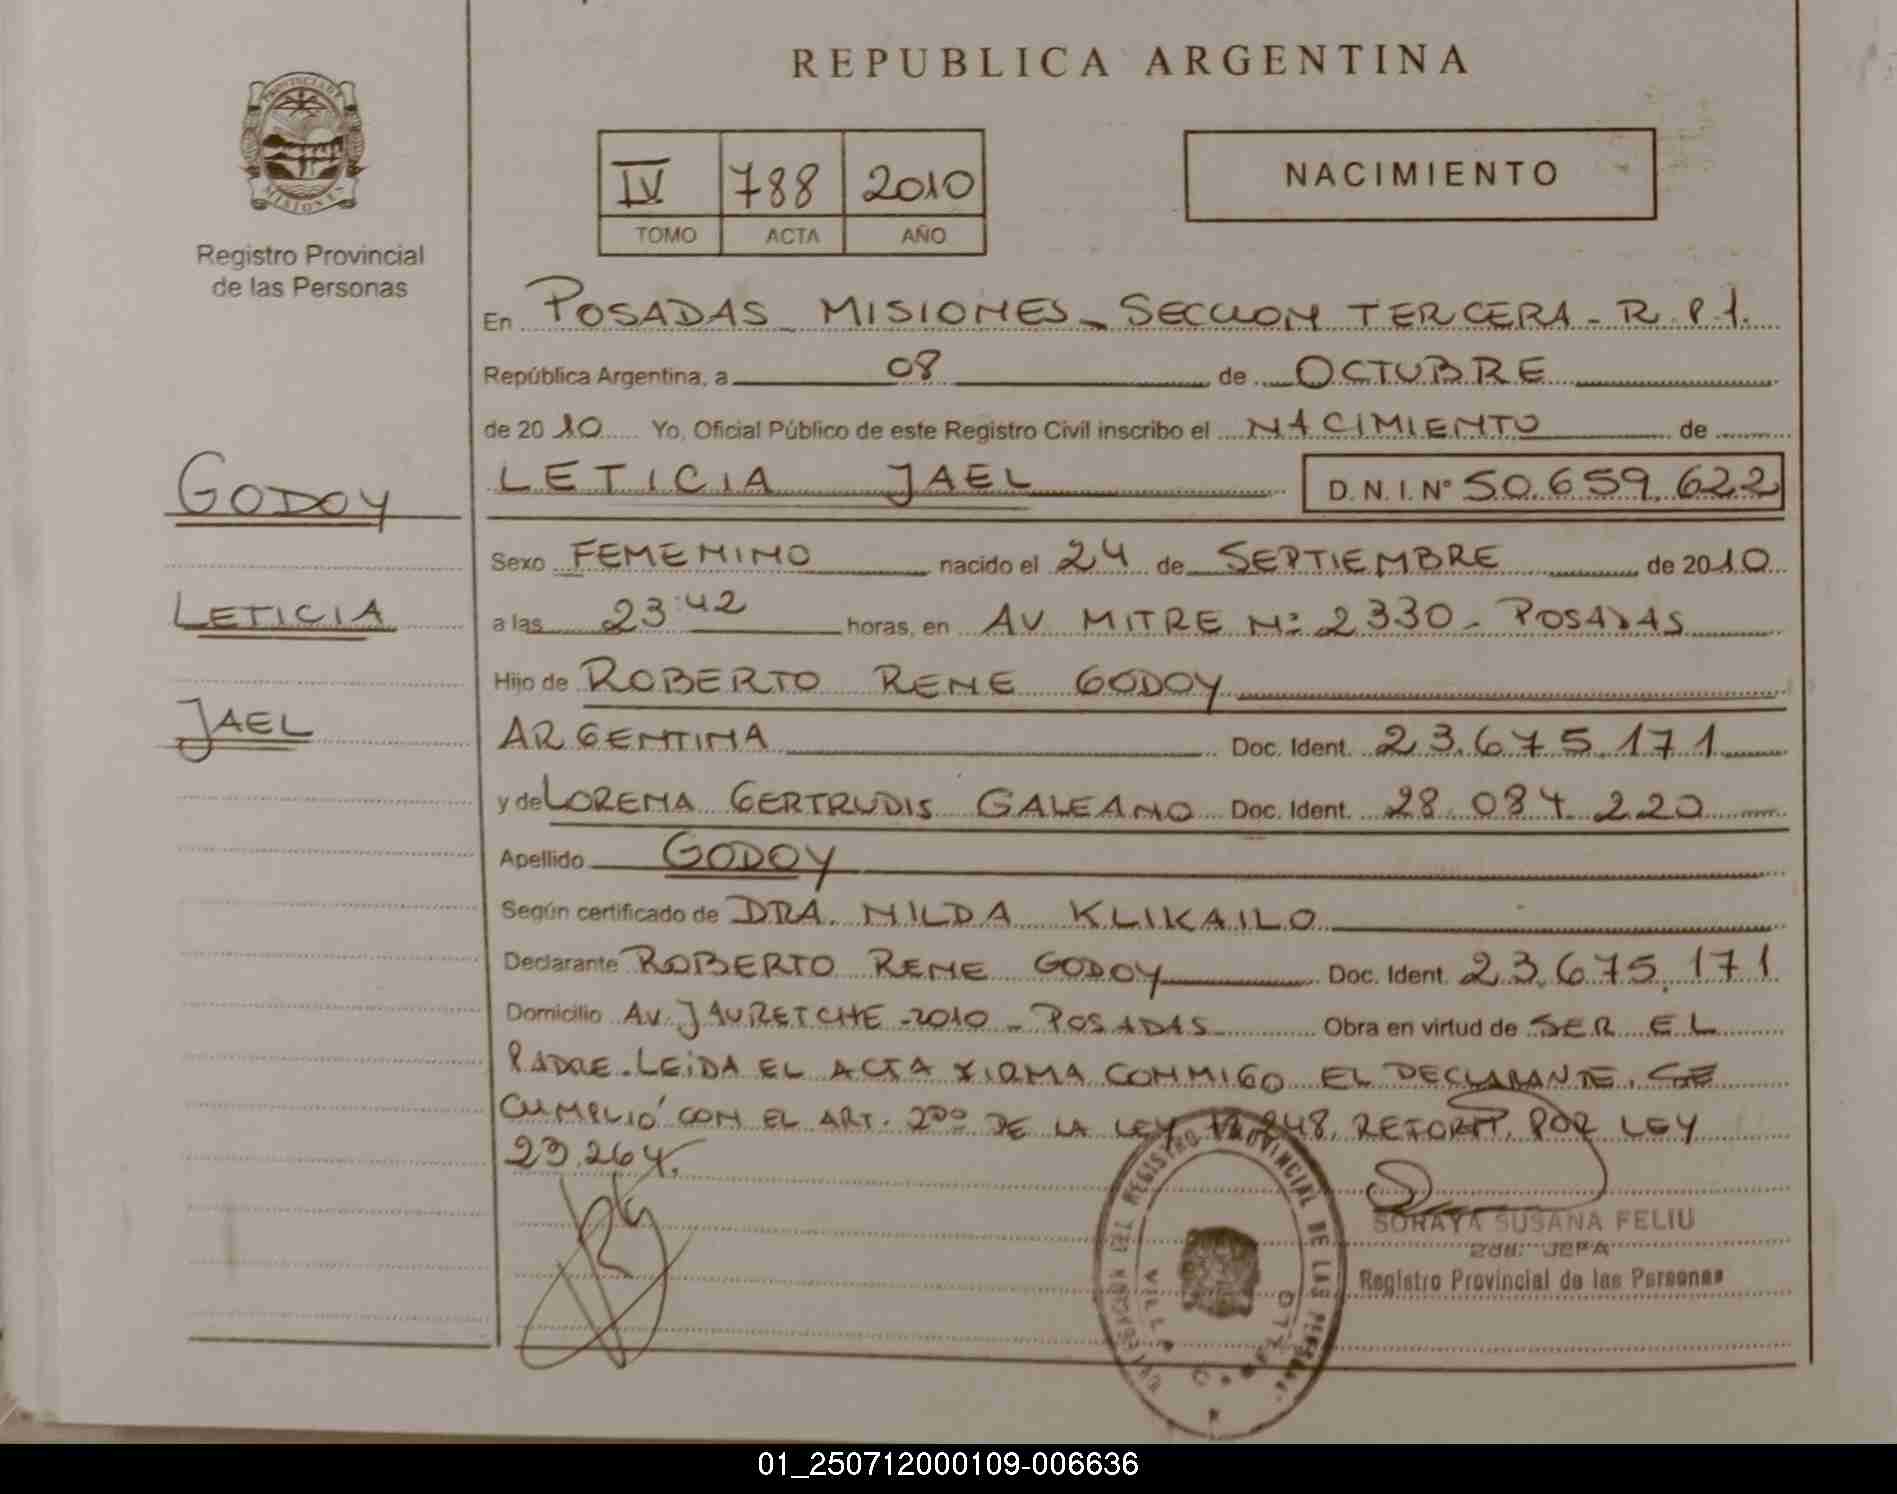 REPUBLICA ARGENTINA
PROVINCIA DE
MISIONES
Registro Provincial
de las Personas
IV 788 2010
TOMO ACTA AÑO
NACIMIENTO
En POSADAS - MISIONES - SECCION TERCERA - R. P. 1.
República Argentina, a 08 de OCTUBRE
de 2010 Yo, Oficial Público de este Registro Civil inscribo el NACIMIENTO de
LETICIA JAEL D.N.I.N° 50.659.622
GODOY
LETICIA
JAEL
Sexo FEMENINO nacido el 24 de SEPTIEMBRE de 2010
a las 23:42 horas, en AV MITRE N: 2330 - POSADAS
Hijo de ROBERTO RENE GODOY
ARGENTINA Doc. Ident. 23.675.171
y de LORENA GERTRUDIS GALEANO Doc. Ident. 28.084.220
Apellido GODOY
Según certificado de DRA. NILDA KLIKAILO
Declarante ROBERTO RENE GODOY Doc. Ident. 23.675.171
Domicilio AV. JAURETCHE - 2010 - POSADAS Obra en virtud de SER EL
PADRE. LEIDA EL ACTA FIRMA CONMIGO EL DECLARANTE. SE
CUMPLIÓ CON EL ART. DE LA LEY RETORM. POR LEY
23.264.
REGISTRO PROVINCIAL DE LAS
SORAYA SUSANA FELIU
2da. JEFA
Registro Provincial de las Personas
01_250712000109-006636